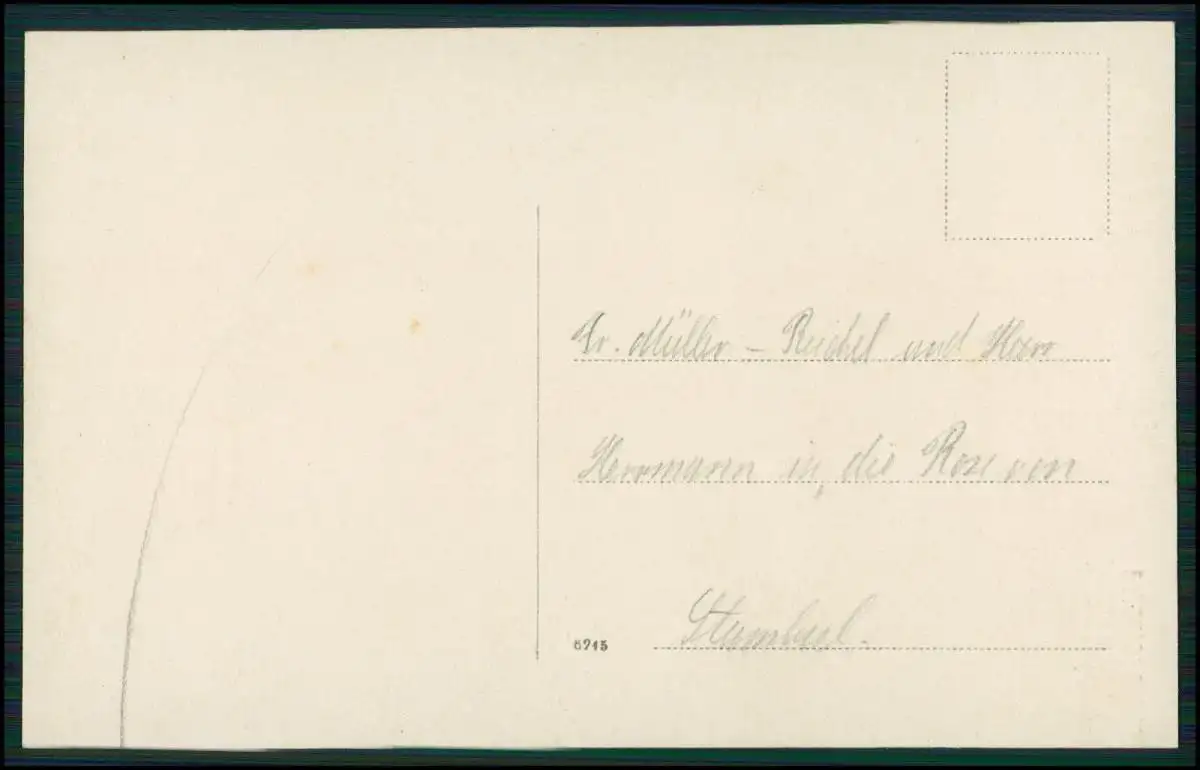 Fr. Müller - Reichel und Herr
Herrmann in „die Rose von
Stambul.
6245